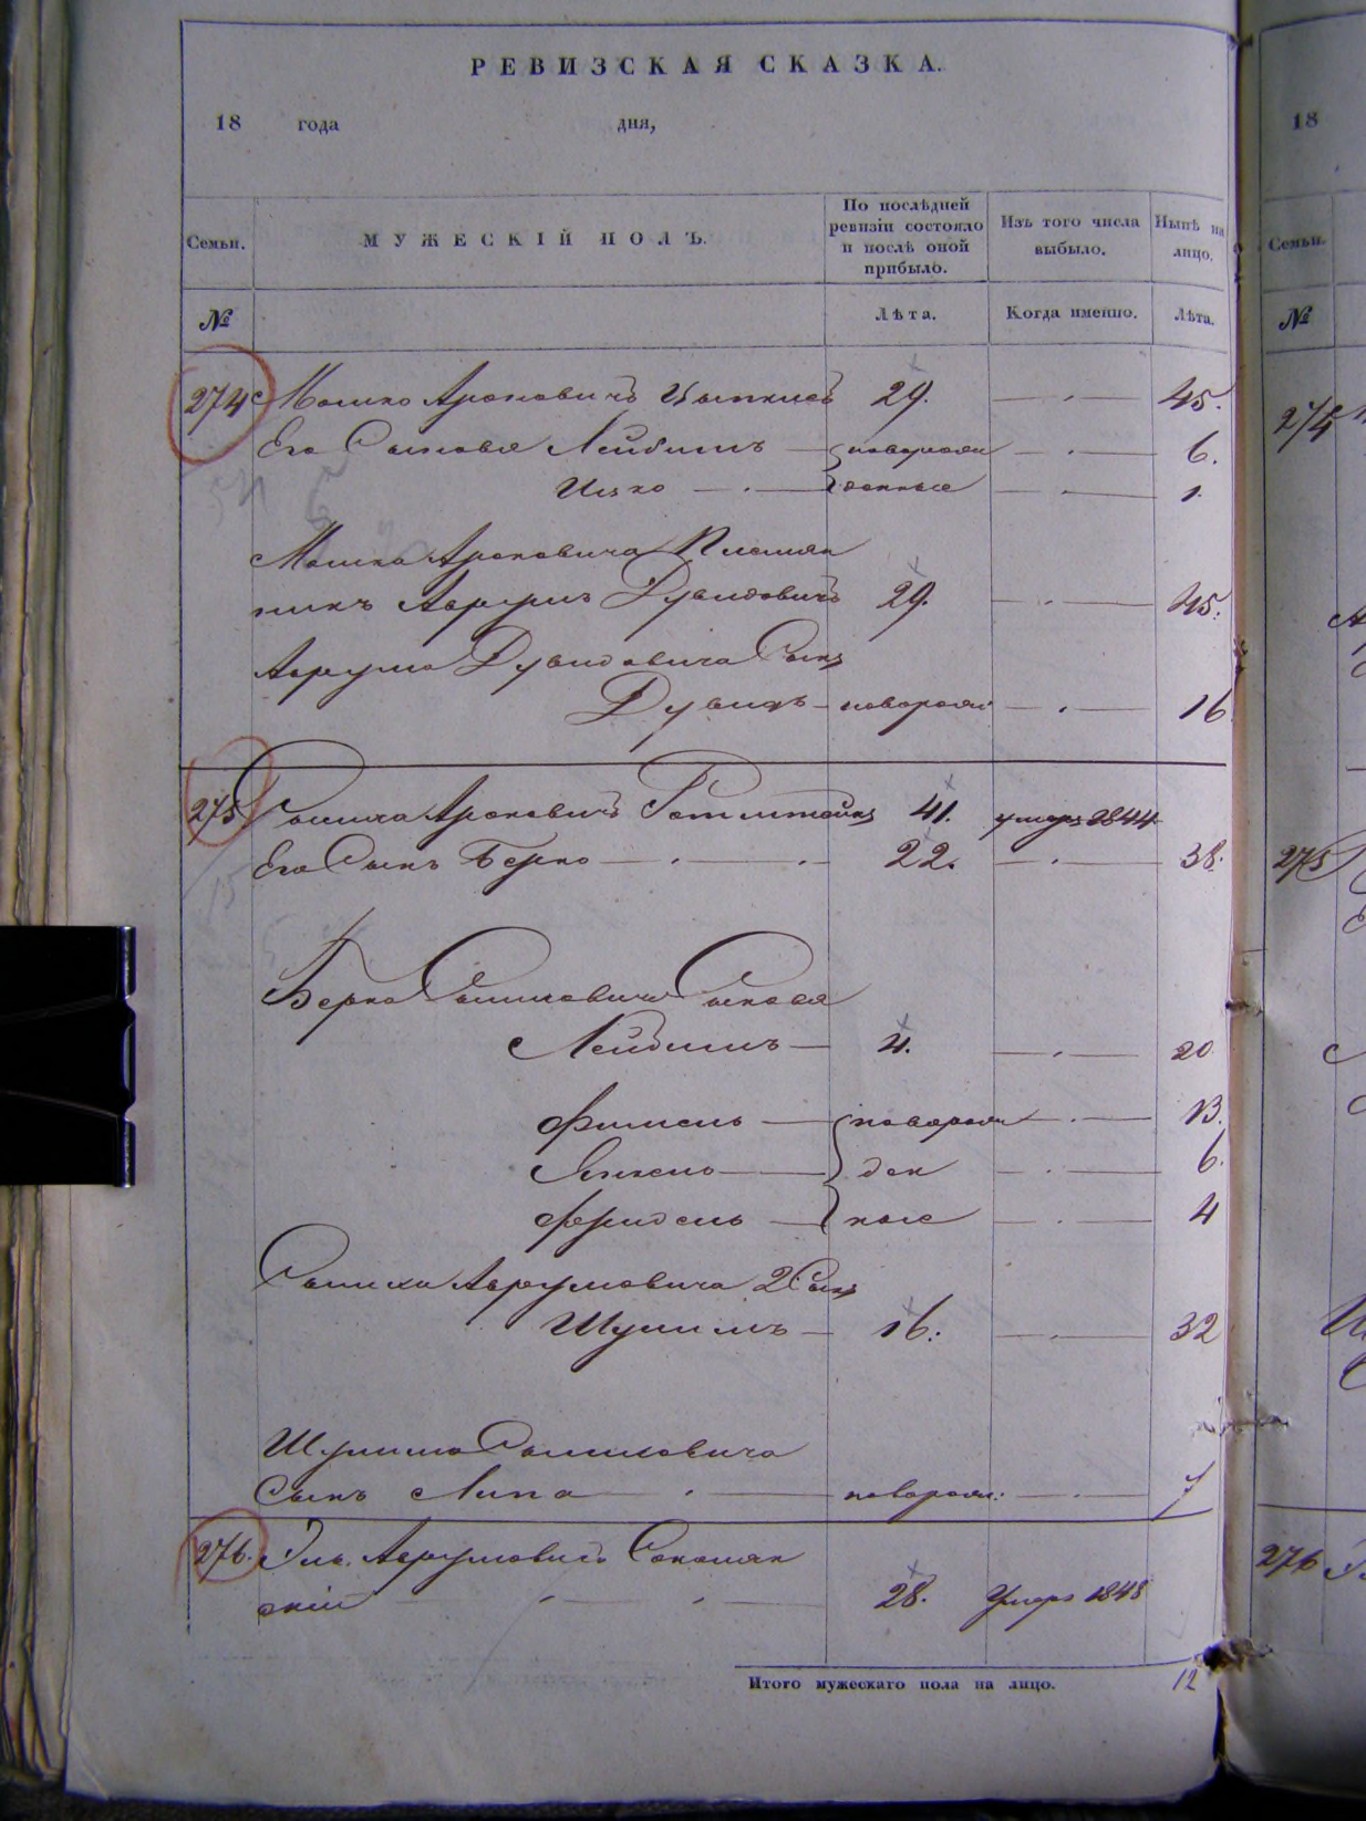 РЕВИЗСКАЯ СКАЗКА.
18 года дня,
18
Семьи.
МУЖЕСКІЙ ПОЛЪ.
По послѣдней ревизіи состояло и послѣ оной прибыло.
Изъ того числа выбыло.
Нынѣ на лицо.
Семьи.
№
Лѣта.
Когда именно.
Лѣта.
№
274 Мошко Ароновичъ 29. 45.
Его Сыновья Лейбишъ новорож 6.
Ицко денные 1.
274
Мошка Ароновича Племян
никъ Аврумъ Дувидовичъ 29. 45.
Аврума Дувидовича Сынъ
Дувидъ новорож: 16
275 Ароновичъ 41. умеръ 1844
Его Сынъ Берко 22. 38.
275
Берка Сыновья
Лейбишъ 4. 20
Фишель новорож 13.
Янкель ден 6.
Фридель ные 4
Аврумовича 2 Сынъ
Шулимъ 16. 32
Шулима
Сынъ Липа новорож:
276. Аврумовичъ Соколян
скій 28. Умеръ 1848
276
Итого мужескаго пола на лицо. 12